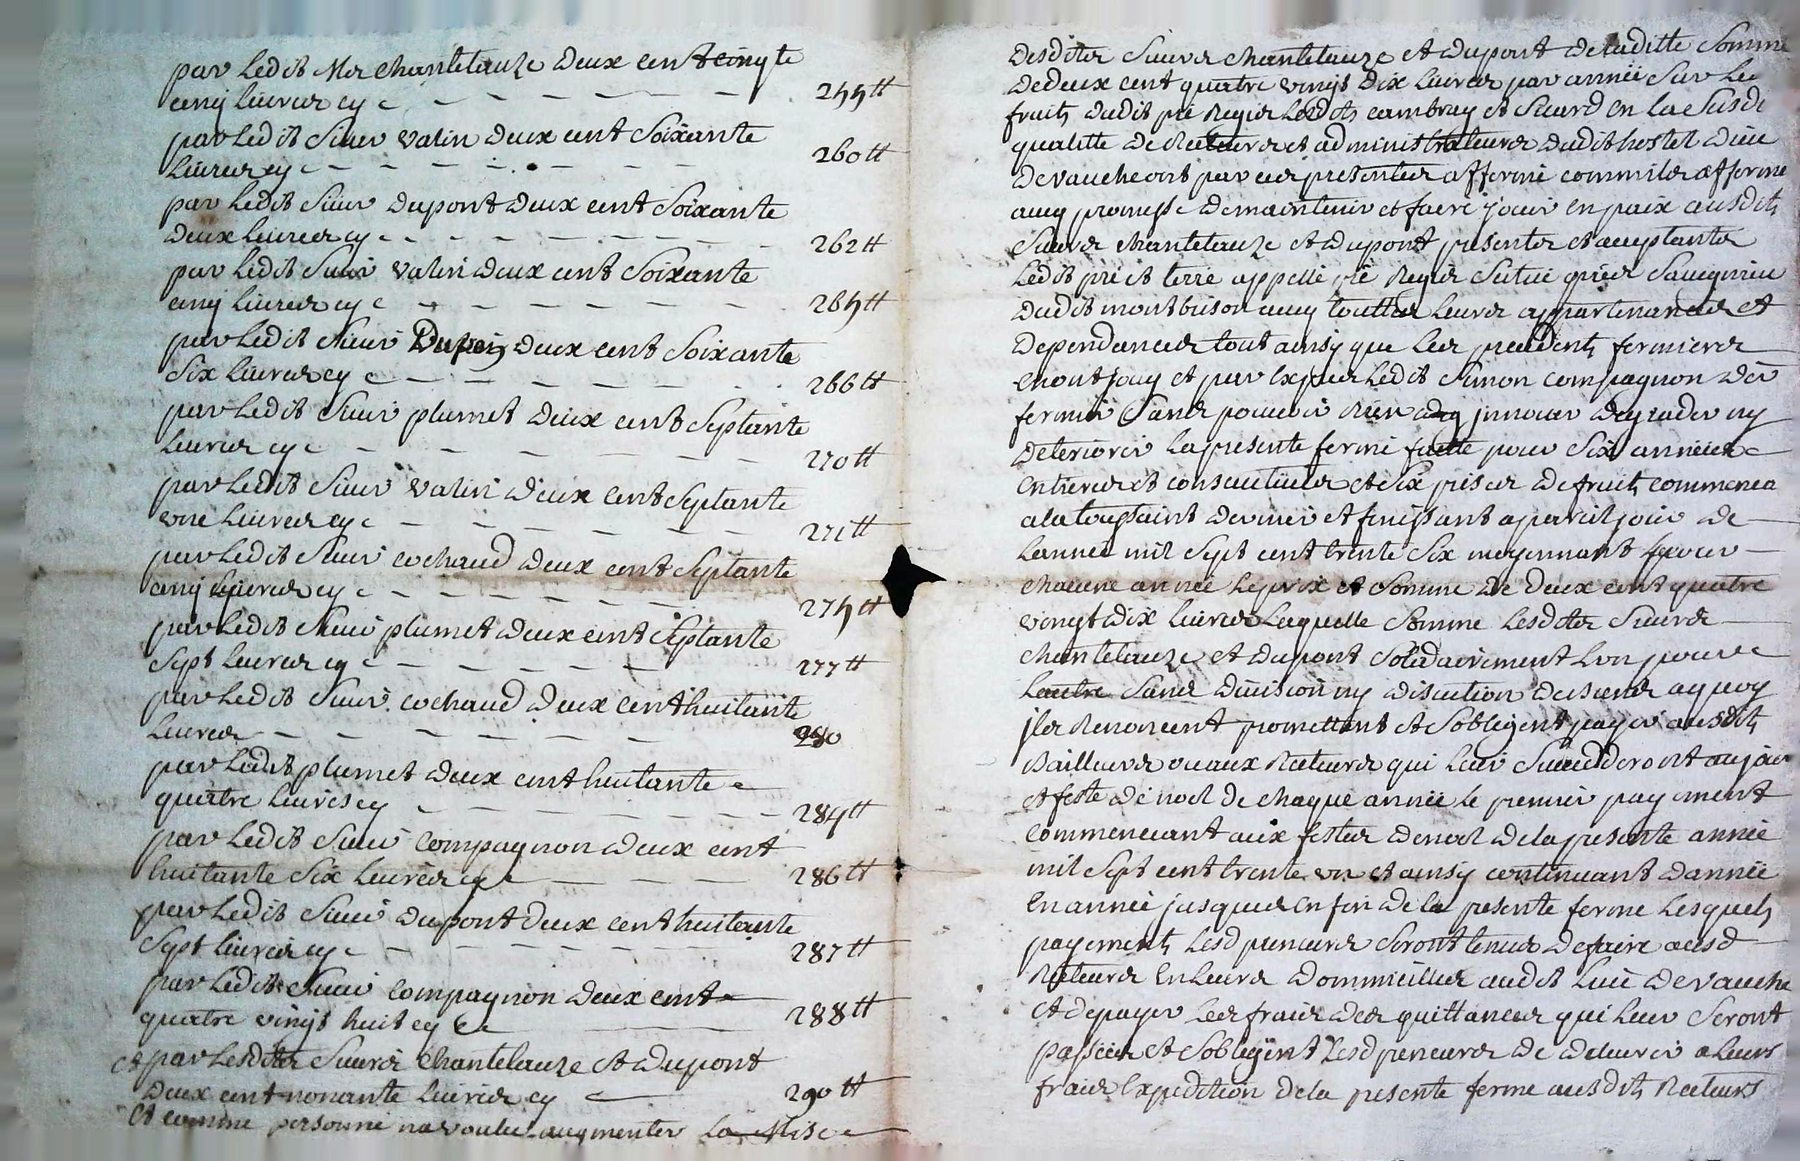 par ledit Mr chantelauze deux cent cinqte
cinq livres cy 255 tt
par ledit Sieur valin deux cent Soixante
livres cy 260 tt
par ledit Sieur dupont deux cent Soixante
deux livres cy 262 tt
par ledit Sieur valin deux cent Soixante
cinq livres cy 265 tt
par ledit Sieur Dupin deux cent Soixante
Six livres cy 266 tt
par ledit Sieur plumet deux cent Septante
livres cy 270 tt
par ledit Sieur valin deux cent Septante
une livres cy 271 tt
par ledit Sieur cochaud deux cent Septante
cinq livres cy 275 tt
par ledit Sieur plumet deux cent Septante
Sept livres cy 277 tt
par ledit Sieur cochaud deux cent huitante
livres 280
par ledit plumet deux cent huitante
quatre livres cy 284 tt
par ledit Sieur compagnon deux cent
huitante Six livres cy 286 tt
par ledit Sieur dupont deux cent huitante
Sept livres cy 287 tt
par ledit Sieur compagnon deux cent
quatre vingt huit cy 288 tt
et par lesdits Sieurs Chantelauze et dupont
deux cent nonante livres cy 290 tt
Et comme personne na voulu augmenter La Mise
desdits Sieurs chantelauze et dupont de laditte Somme
de deux cent quatre vingt dix livres par année Sur les
fruits dudit pré Regier lesdits cambray et Sicard en la Susd
qualitte de Recteurs et administrateurs dudit hostel dieu
de vaucheont par ces presentes affermé comme ils afferme
avec promesse de maintenir et faire jouir en paix ausdits
Sieurs chantelauze et dupont presentes et acceptantes
ledit pré et terre appellé pré Regier Scitué
dudit montbrison avec touttes leurs appartenances et
dependances tout ainsy que les precedents fermiers
en ont jouy et par exprès ledit Simon compagnon der
fermier Sans pouvoir Rien innover degrader ny
deteriorer la presente ferme faitte pour Six années
entieres et consecutives et Six prises de fruits commencea
a la toussaint dernier et finissant a pareil jour de
lannée mil Sept cent trente Six moyennant pour
chacune année le prix et Somme de deux cent quatre
vingt dix livres laquelle Somme lesdits Sieurs
chantelauze et dupont Solidairement lun pour
lautre Sans division ny discution dusiens aquoy
jls Renoncent promettent et Sobligent payer ausdits
Bailleurs ou aux Recteurs qui leur Succedderont au jour
et feste de noel de chaque année le premier payement
commencant aux festes de noel de la presente année
mil Sept cent trente un et ainsy continuant dannée
en année jusques en fin de la presente ferme lesquels
payements lesd preneurs Seront tenus de faire ausd
Recteurs en leurs dommicilles audit lieu de vauche
et de payer les frais des quittances qui leur Seront
passées et Sobligent lesd preneurs de delivrer a leurs
frais Expedition de la presente ferme ausdits Recteurs